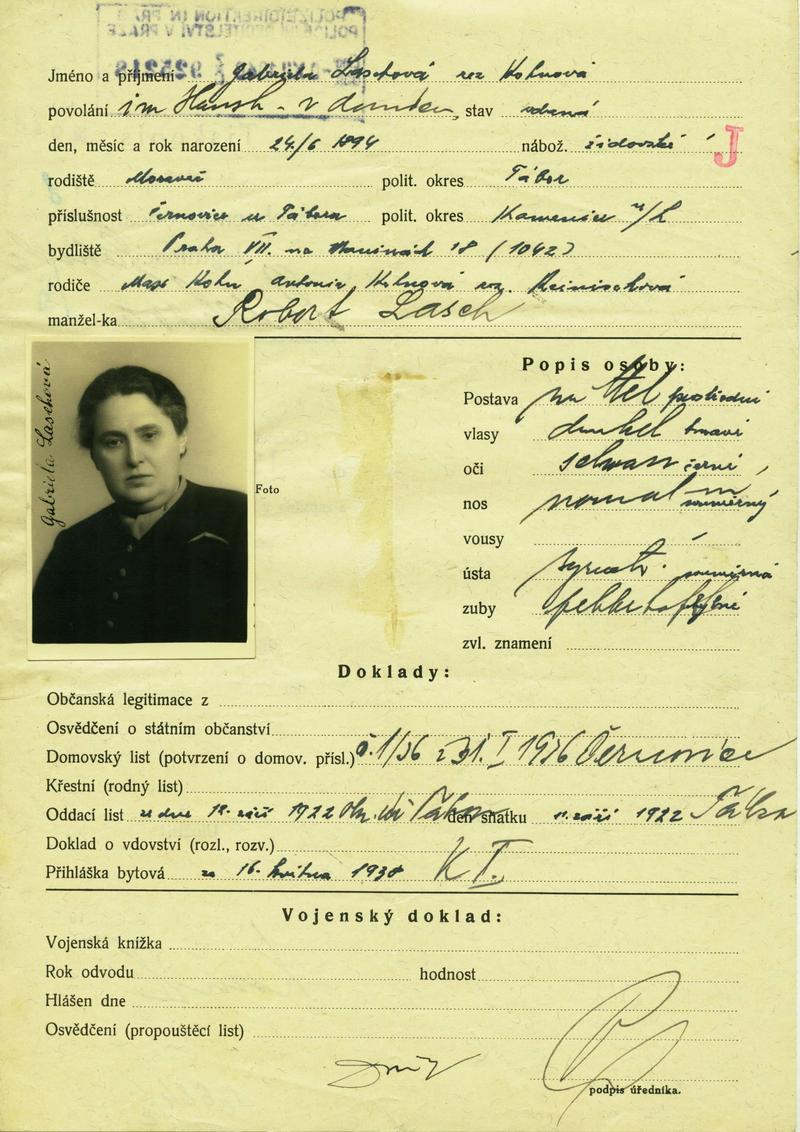 Jméno a příjmení Gabriela Laschová roz Kohnová
povolání im Haush. - v domácn., stav vdaná
den, měsíc a rok narození 24/6 1894 nábož. židovské J
rodiště polit. okres Tábor
příslušnost Černovice u Tábora polit. okres Kamenice n/L
bydliště Praha VII. na Maninách 18 (1042)
rodiče Max Kohn, Antonie Kohnová roz.
manžel-ka Robert Lasch
Gabriela Laschová
Foto
Popis osoby:
Postava mittel prostřední
vlasy dunkel tmavé
oči schwarz černé
nos normal souměrný
vousy
ústa symetr. souměrná
zuby
zvl. znamení
Doklady:
Občanská legitimace z
Osvědčení o státním občanství
Domovský list (potvrzení o domov. přísl.) č. 1/36 z 31. I 1936 Černovice
Křestní (rodný list)
Oddací list ze dne září 1922 den sňatku 11. září 1922 Tábor
Doklad o vdovství (rozl., rozv.)
Přihláška bytová ze 16. května
Vojenský doklad:
Vojenská knížka
Rok odvodu hodnost
Hlášen dne
Osvědčení (propouštěcí list)
podpis úředníka.